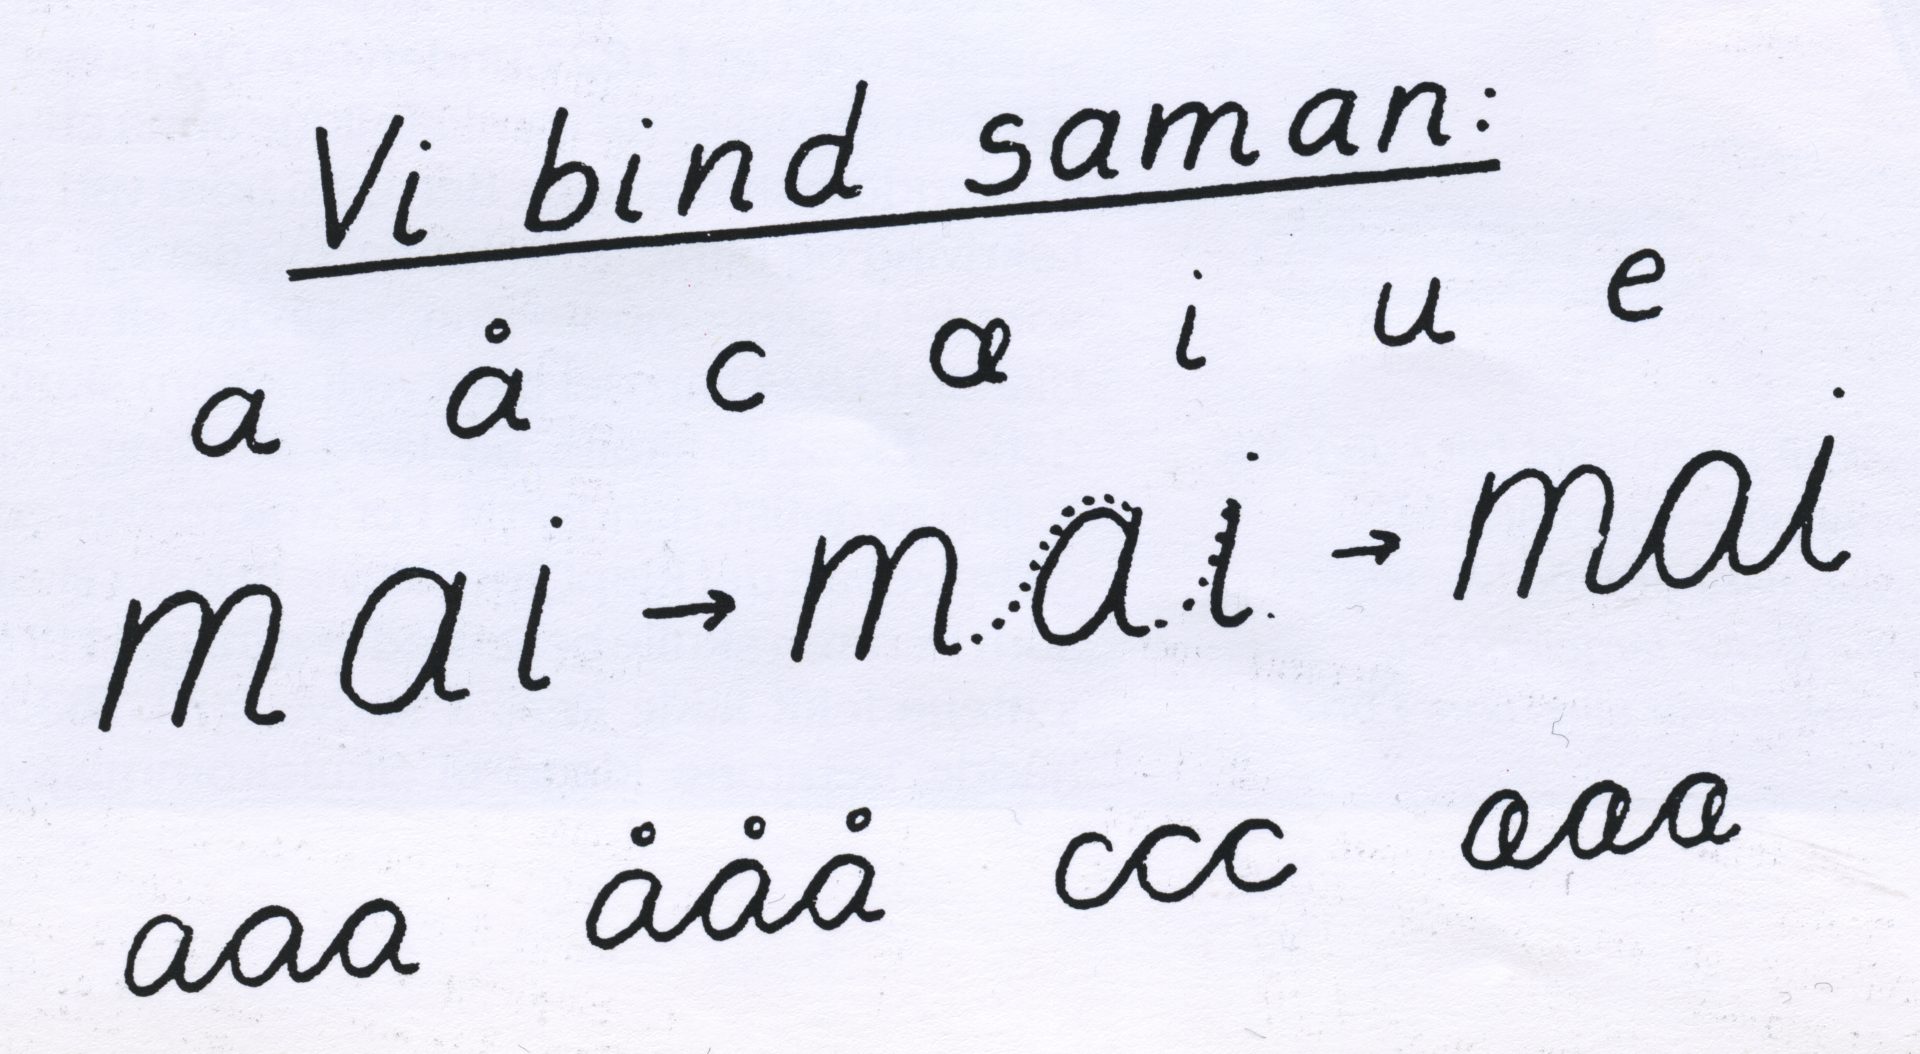 Vi bind saman:
a å c æ i u e
mai → mai → mai
aaa ååå ccc æææ